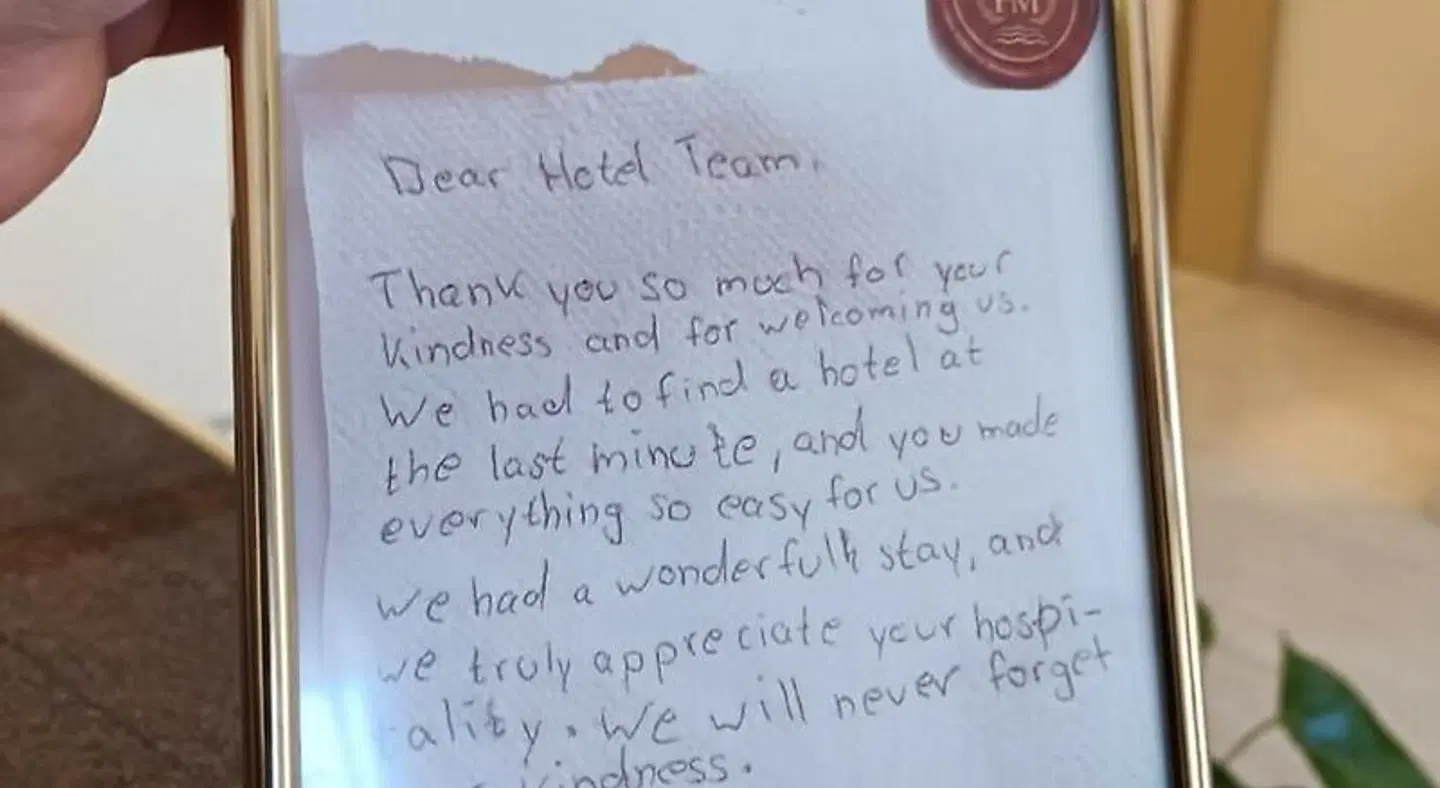 HM
Dear Hotel Team,
Thank you so much for your
kindness and for welcoming us.
We had to find a hotel at
the last minute, and you made
everything so easy for us.
We had a wonderfulh stay, and
we truly appreciate your hospi-
ality. We will never forget
kindness.